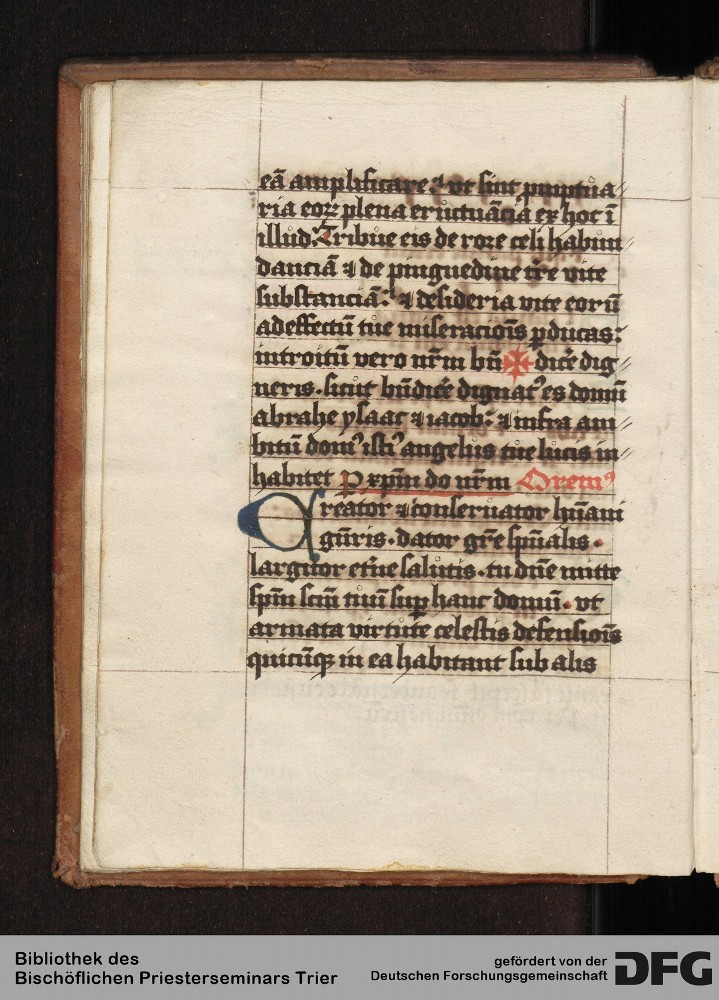 eā amplificare: ut sint pmptua
ria eoꝝ plena eructuācia ex hoc ī
illud. Tribue eis de rore celi habun
danciā ⁊ de pinguedine tr̄e vite
substanciā: ⁊ desideria vite eorū
adeffectū tue miseracioīs ꝑducas:
introitū vero nr̄m bn̄ ✠ dic̄e dig
neris. sicut bn̄dic̄e dignat᷒ es domū
abrahe ysaac ⁊ iacob: ⁊ infra am
bitū dom᷒ isti᷒ angelus tue lucis in
habitet P xp̄m do nr̄m Orem᷒
Creator ⁊ conseruator hūani
gn̄ris. dator gr̄e sp̄ualis.
largitor et̄ne salutis. tu dn̄e mitte
sp̄m scm̄ tuū suꝑ hanc domū. vt
armata virtute celestis defensioīs
quicūqꝫ in ea habitant sub alis
Bibliothek des
Bischöflichen Priesterseminars Trier
gefördert von der
Deutschen Forschungsgemeinschaft
DFG